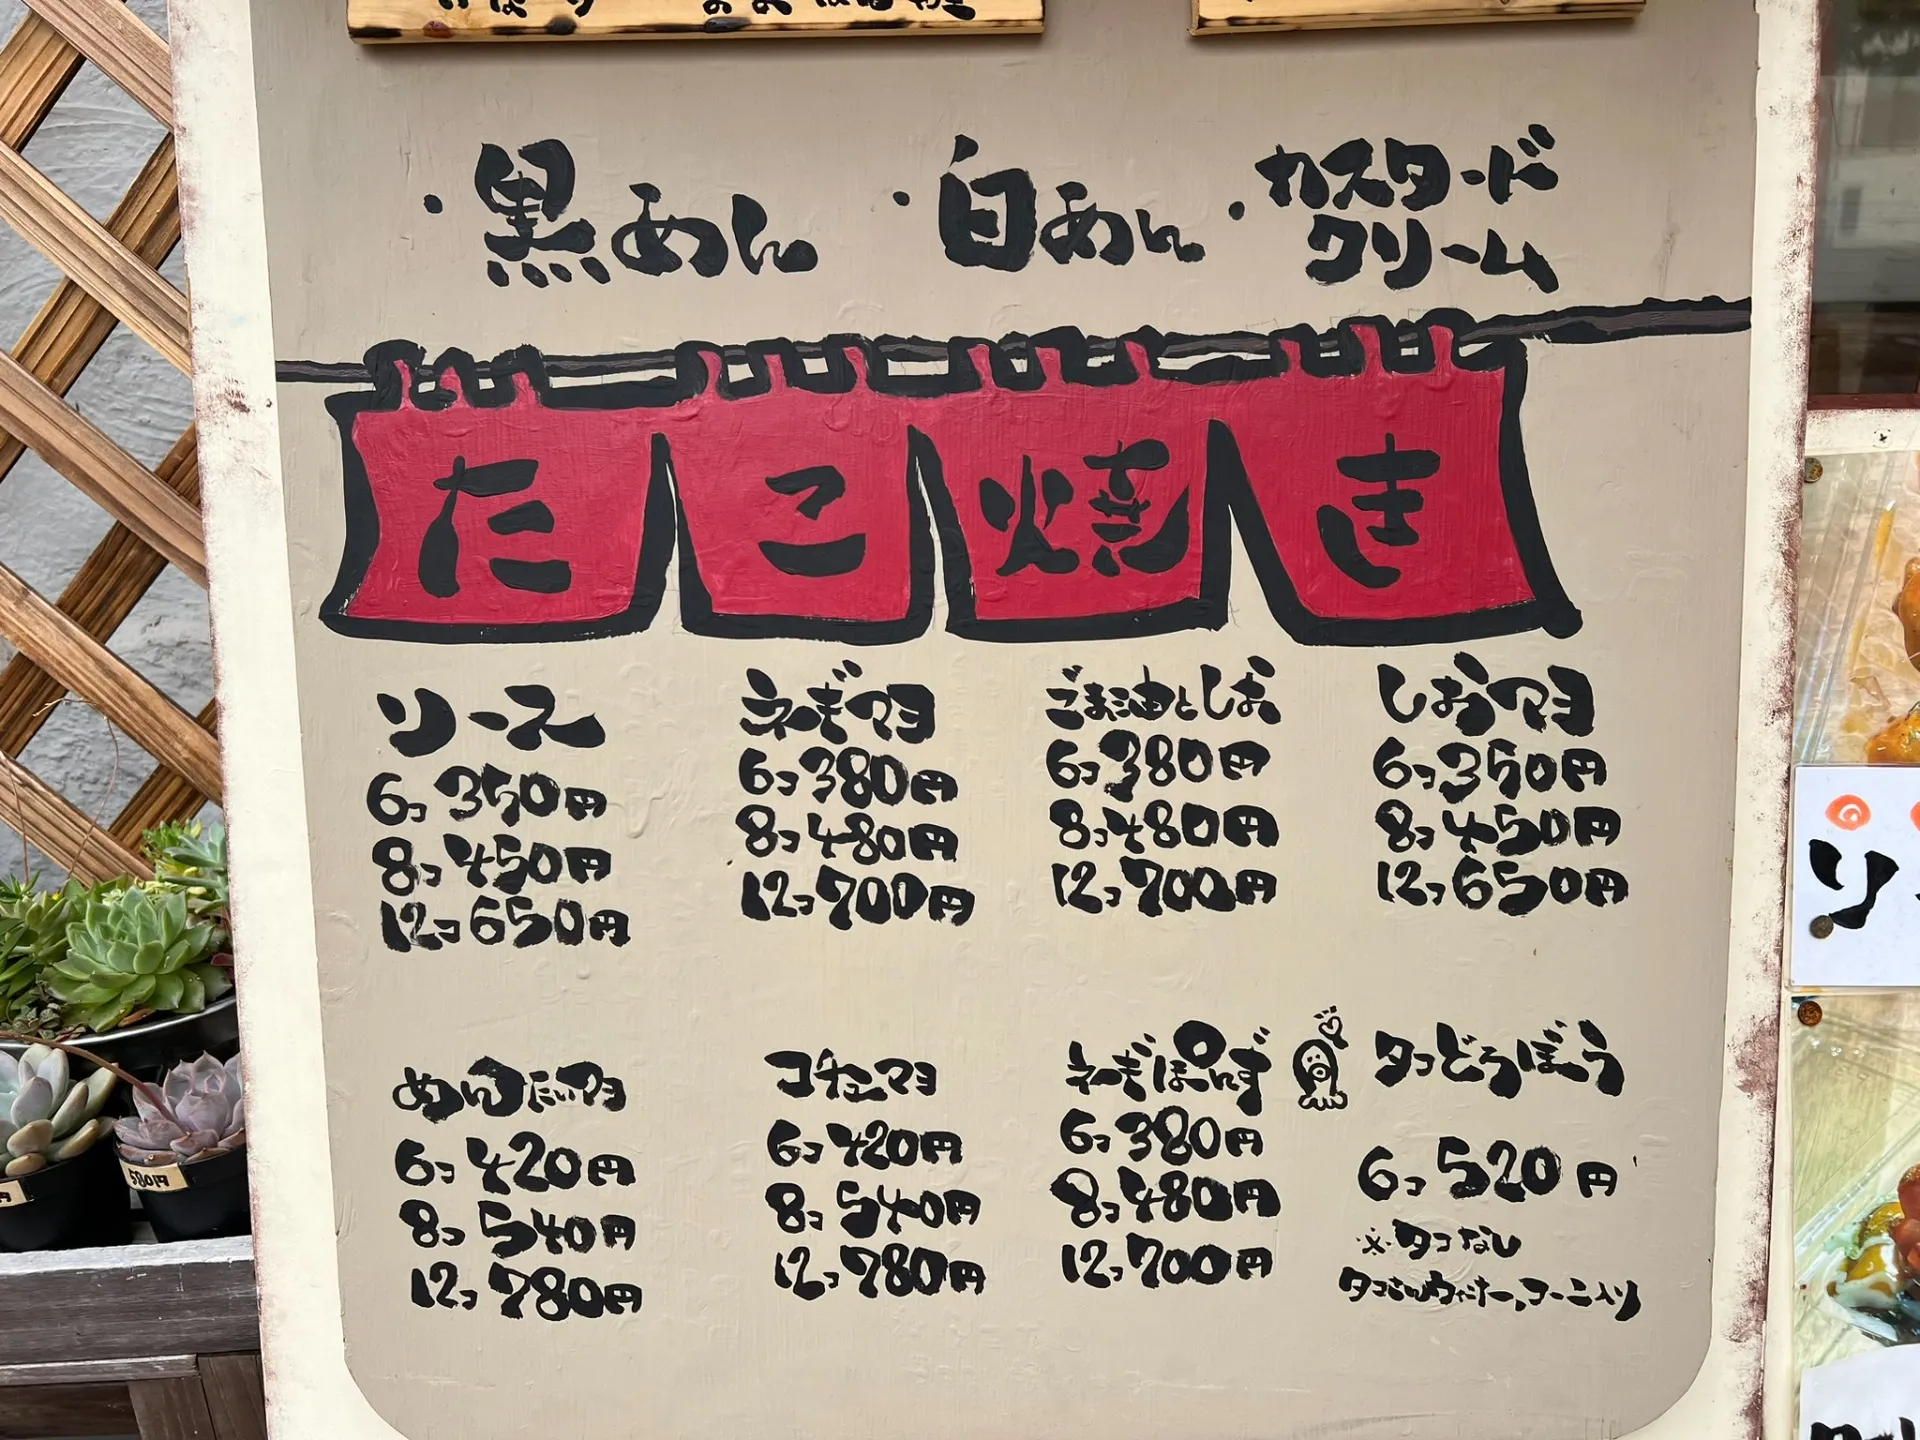 ・黒あん ・白あん ・カスタードクリーム
たこ焼き
ソース
6コ 350円
8コ 450円
12コ 650円
ネギマヨ
6コ 380円
8コ 480円
12コ 700円
ごま油としお
6コ 380円
8コ 480円
12コ 700円
しおマヨ
6コ 350円
8コ 450円
12コ 650円
めんたいマヨ
6コ 420円
8コ 540円
12コ 780円
コチュマヨ
6コ 420円
8コ 540円
12コ 780円
ネギぽんず
6コ 380円
8コ 480円
12コ 700円
タコどろぼう
6コ 520円
※タコなし
タコさんウィンナー、コーン入り
580円